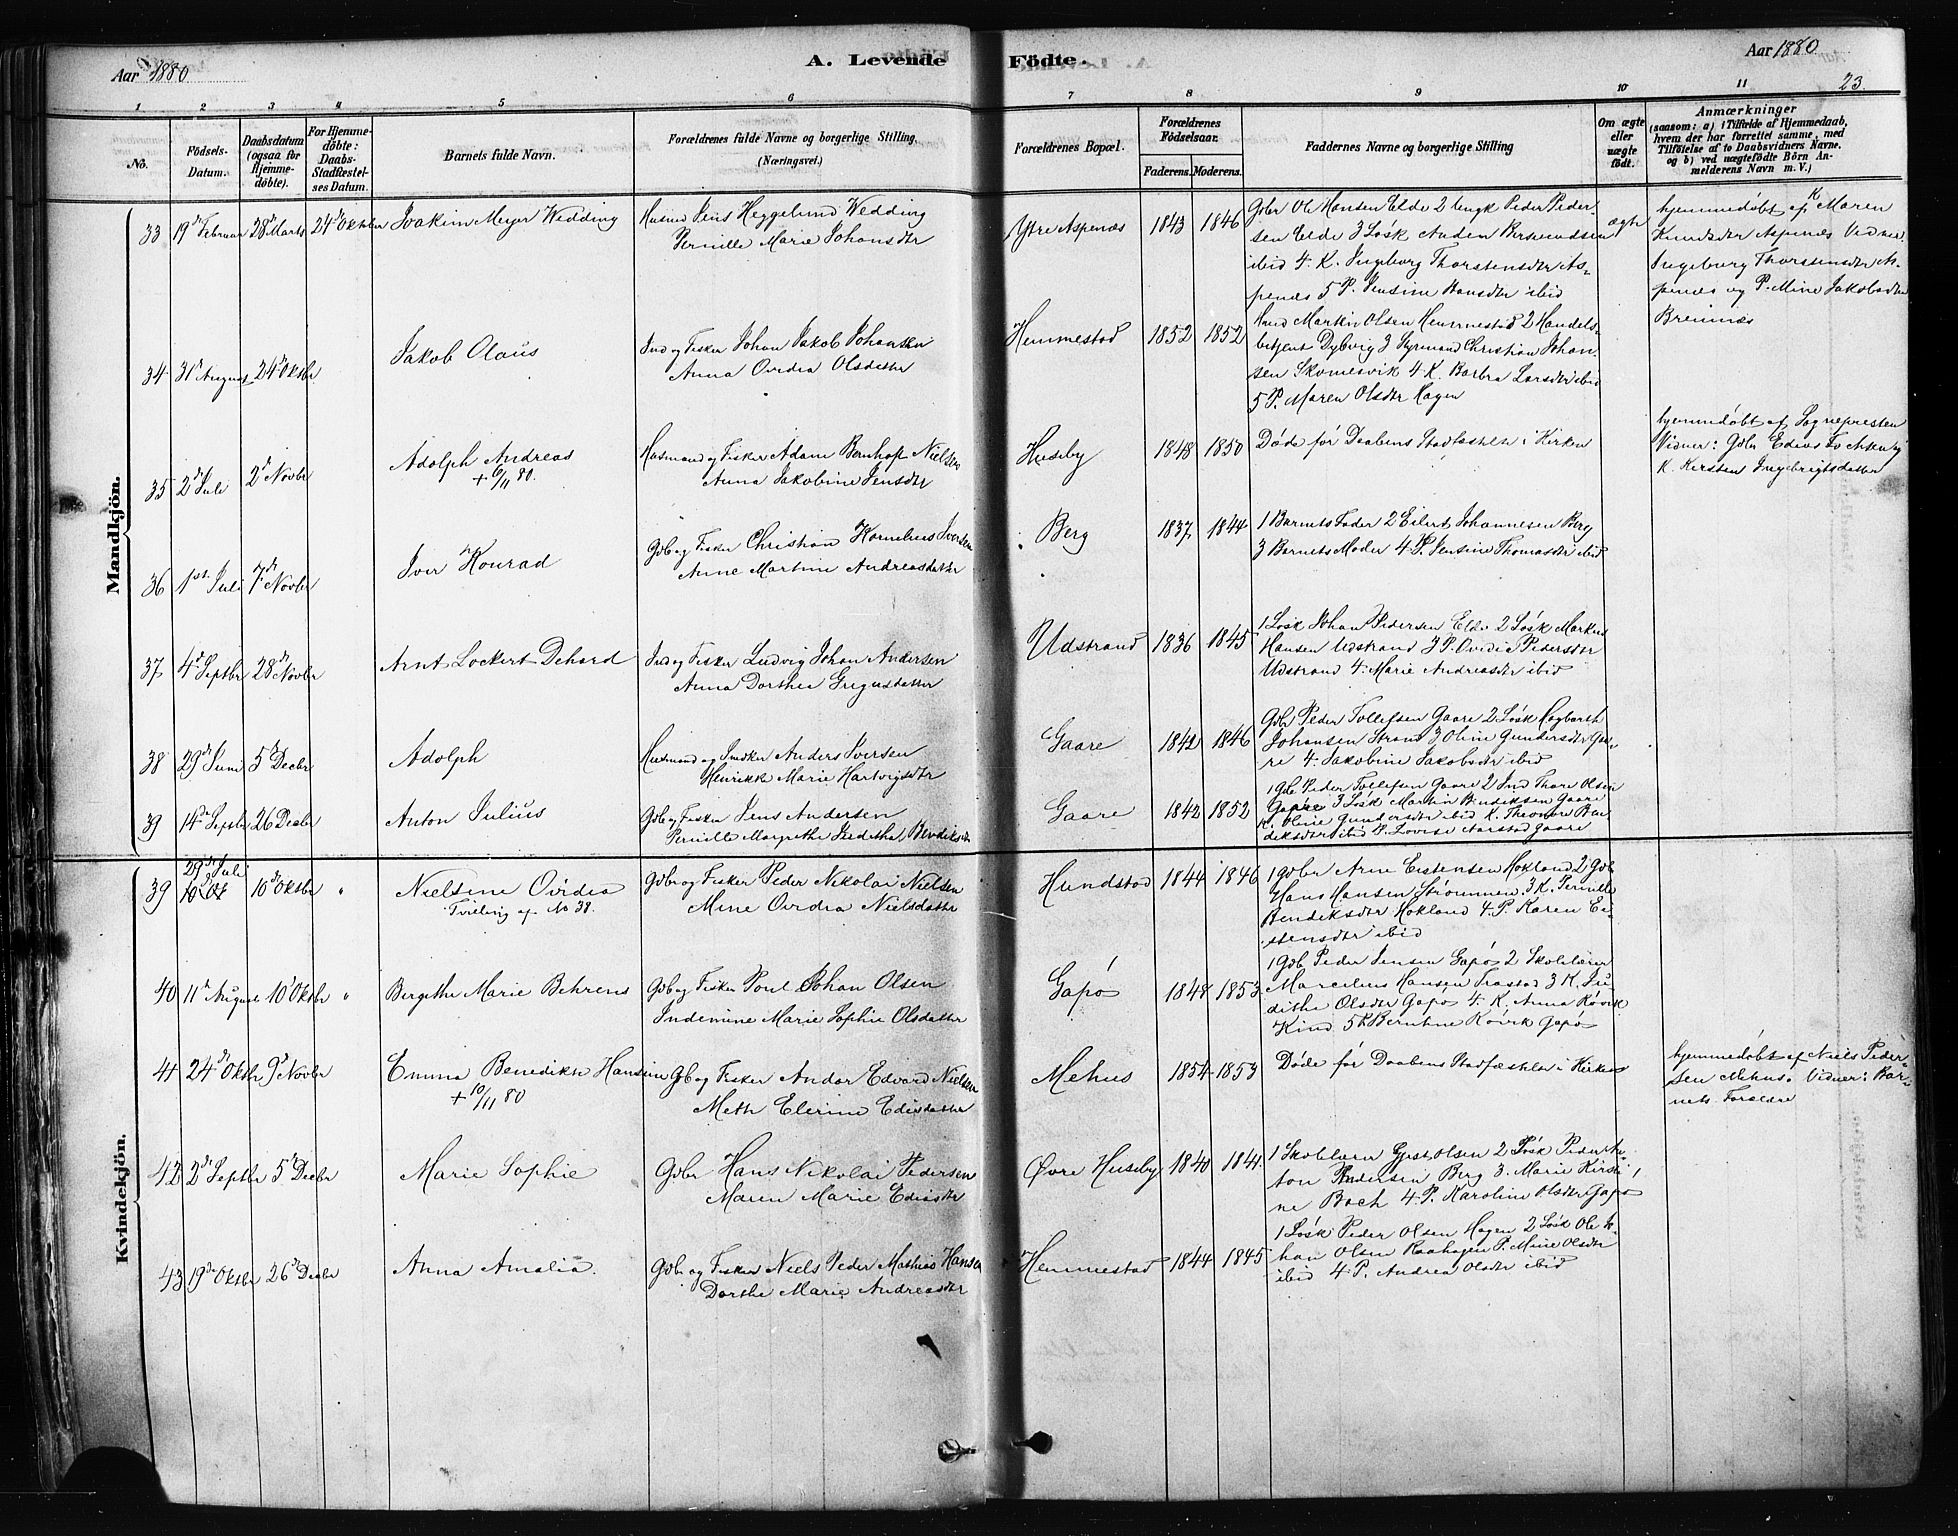 Aar 1880
A. Levende
Födte.
Aar 1880
23.
1 2 3 4 5 6 7 8 9 10 11
No.
Födsels-
Datum.
Daabsdatum
(ogsaa for
Hjemme-
döbte).
For Hjemme-
döbte:
Daabs-
Stadfæstel-
ses Datum.
Barnets fulde Navn.
Forældrenes fulde Navne og borgerlige Stilling.
(Næringsvei.)
Forældrenes Bopæl.
Forældrenes
Födselsaar.
Faderens. Moderens.
Faddernes Navne og borgerlige Stilling
Om ægte
eller
uægte
födt.
Anmærkninger
(saasom: a) i Tilfælde af Hjemmedaab,
hvem der har forrettet samme, med
Tilföielse af to Daabsvidners Navne.
og b) ved uægtefödte Börn An-
melderens Navn m. V.)
Mandkjön.
33 19de Februar 28de Marts 24de Oktober Joakim Meyer Wedding
Husmd Jens Heggelund Wedding
Pernille Marie Johansdtr
Ytre Aspenæs 1843 1846
Gdbr Ole Hansen Elde 2 Ungk Peder Peder-
sen Elde 3 Løsk
ibid 4. K. Ingeborg Thorstensdtr As-
penæs 5 P. Jensine Hansdtr ibid
ægte
hjemmedøbt af K Maren
Knudsdtr Aspenæs Vidner.
Ingeborg Thorstensdtr As-
penæs og P. Mine Jakobsdtr
Bremnæs
34 31te August 24de Oktbr Jakob Olaus
Ind og Fisker Johan Jakob Johansen
Anna Ovidia Olsdatter
Hemmestad 1852 1852
Martin Olsen Hemmestad 2 Handels-
betjent Dybvig 3 Styrmand Christian Johan-
sen Skomesvik 4 K. Barbra Larsdtr ibid
5 P. Maren Olsdtr Hagen
35 2de Juli 2de Novbr Adolph Andreas
+ 6/11 80.
Husmand og Fisker Adam Bernhoft Nielsen
Anna Jakobine Jensdtr
Huseby 1848 1850
Døde før Daabens Stadfæstelse i Kirken
hjemmedøbt af Sognepresten
Vidner: Gdbr Edias
K. Kirsten Ingebrigtsdatter
36 1ste Juli 7de Novbr Iver Konrad
Gdb og Fisker Christian Kornelius Iversen
Anne Martine Andreasdatter
Berg 1837 1844
1 Barnets Fader 2 Eilert Johannesen Berg
3 Barnets Moder 4 P. Jensine Thomasdtr ibid
37 4de Septbr 28de Novbr Arnt Lockert Dehard
Ind og Fisker Ludvig Johan Andersen
Anna Dorthea Gregusdatter
Udstrand 1836 1845
1 Løsk Johan Pedersen Elde 2 Løsk Markus
Hansen Udstrand 3 P. Ovidia Pedersdtr
Udstrand 4. Marie Andreasdtr ibid
38 29de Juni 5te Decbr Adolph
Husmand og Anders Iversen
Henrikke Marie Hartvigsdtr
Gaare 1842 1846
Gdbr Peder Tollefsen Gaare 2 Løsk Hagbarth
Johansen Strand 3 Oline Gundersdtr Gaa-
re 4. Jakobine Jakobsdtr ibid
39 14de Septbr 26 Decbr Anton Julius
Gdb og Fisker Jens Andersen
Pernille Margrethe Bendiksdtr
Gaare 1842 1852
1 Gdb Peder Tollefsen Gaare 2 Ind Thore Olsen
Gaare 3 Løsk Martin Bendiksen Gaare
K. Oline Gundersdtr ibid K. Theodore Ben-
diksdtr ibid P. Lovise Gaare
Kvindekjön.
39 29de Juli 10de Oktbr " Nielsine Ovidia
Tvilling af No 38.
Gdbr og Fisker Peder Nikolai Nielsen
Mine Ovidia Nielsdatter
Hundstad 1844 1846
1 Gdbr Arne Eistensen Hokland 2 Gdb
Hans Hansen Strømmen 3 K. Pernille
Bendiksdtr Hokland 4. P. Karen Ei-
stensdtr ibid
40 11te August 10de Oktbr " Bergithe Marie Behrens
Gdb og Fisker Poul Johan Olsen
Indemine Marie Sophie Olsdatter
Gapø 1848 1853
1 Gdb Peder Jensen Gapø 2 Skolelærer
Marcelius Hansen Trastad 3 K. Ju-
dithe Olsdtr Gapø 4. K. Anna Røvik
Kind 5 P Røvik Gapø
41 24de Oktbr 9de Novbr Emma Benedikte Hansine
+ 10/11 80
Gdb og Fisker Andor Edvard Nielsen
Mette Elerine Edisdatter
Mehus 1854 1853
Døde før Daabens Stadfæstelse i Kirken
hjemmedøbt af Niels Peder-
sen Mehus. Vidner: Bar-
nets Forældre
42 2de Septbr 5te Decbr Marie Sophie
Gdbr Hans Nikolai Pedersen
Maren Marie Edisdtr
Øvre Huseby 1840 1841.
1 Skolelærer Olsen 2 Løsk Peder An-
ton Andersen Berg 3. Marie Kirsti-
ne Bach 4. P. Karoline Olsdtr Gapø
43 19de Oktbr 26de Decbr Anna Amalia.
Gdb og Fisker Niels Peder Mathias Hansen
Dorthe Marie Andreasdtr
Hemmestad 1844 1845
1 Løsk Peder Olsen Hagen 2 Løsk Ole Jo-
han Olsen P. Mine Olsdtr
ibid 4 P. Andrea Olsdtr ibid